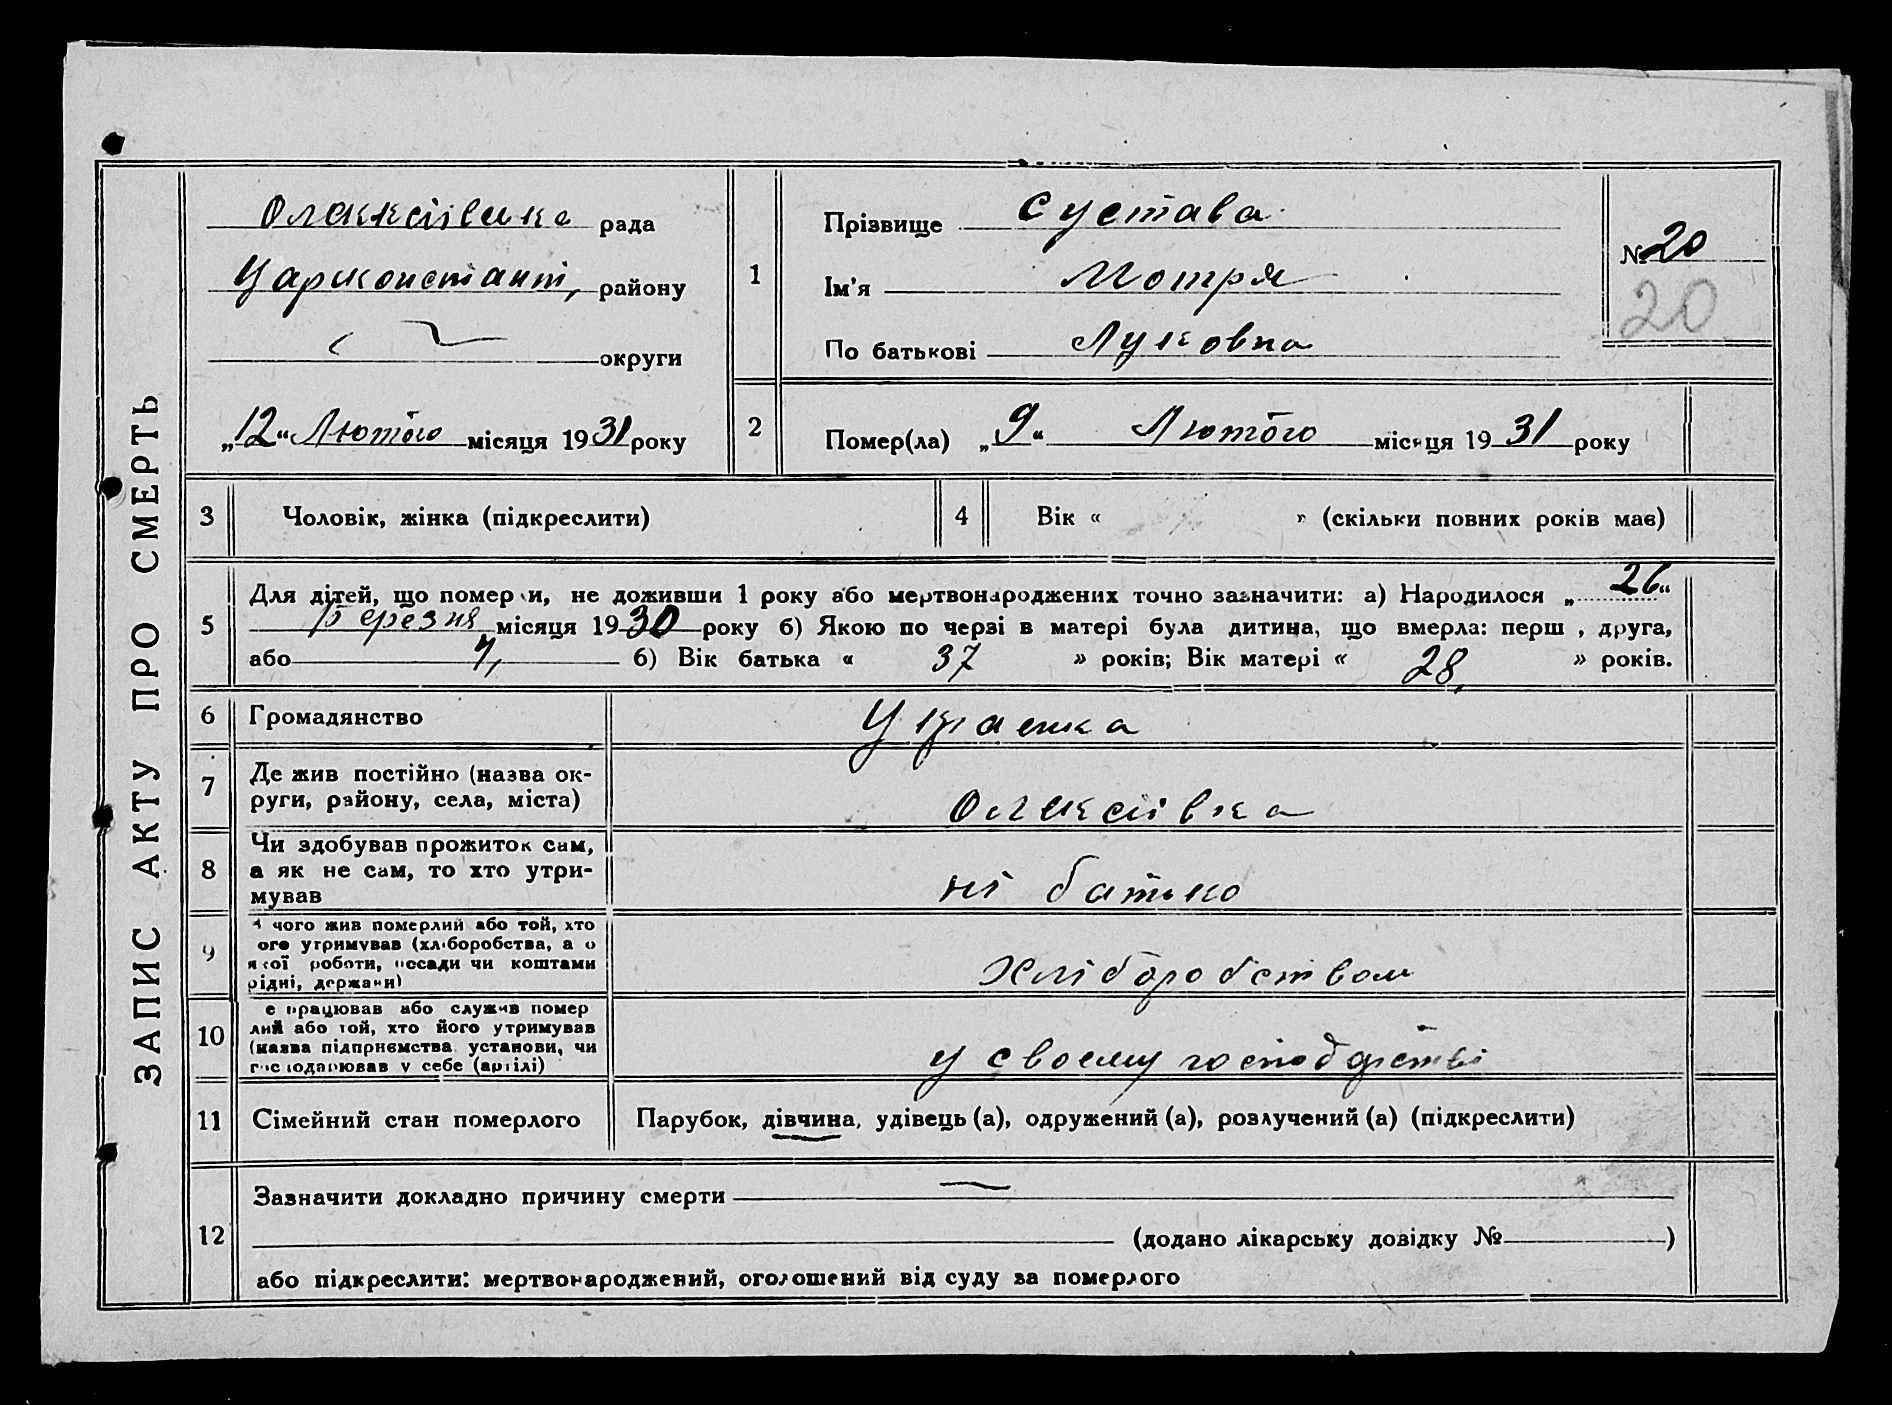 ЗАПИС АКТУ ПРО СМЕРТЬ
Олексіївська рада
Царконстант, району
округи
„12“ Лютого місяця 1931 року
1
Прізвище Сустава
Ім'я Мотря
По батькові Луковна
№ 20
20
2
Помер(ла) „9“ Лютого місяця 1931 року
3 Чоловік, жінка (підкреслити)
4 Вік « » (скільки повних років має)
5 Для дітей, що померли, не доживши 1 року або мертвонароджених точно зазначити: а) Народилося „26“
Березня місяця 1930 року б) Якою по черзі в матері була дитина, що вмерла: перш , друга,
або 7, б) Вік батька « 37 » років; Вік матері « 28 » років.
6 Громадянство Украенка
7 Де жив постійно (назва ок-
руги, району, села, міста) Олексіївка
8 Чи здобував прожиток сам,
а як не сам, то хто утри-
мував ні батько
9 чого жив померлий або той, хто
ого утримував (хліборобства, а о
якої роботи, посади чи коштами
рідні, держави) Хліборобством
10 е працював або служив помер
лий або той, хто його утримував
(назва підприємства установи, чи
господарював у себе (артілі) у своему господарстві
11 Сімейний стан померлого Парубок, дівчина, удівець (а), одружений (а), розлучений (а) (підкреслити)
12 Зазначити докладно причину смерти —
(додано лікарську довідку № )
або підкреслити: мертвонароджений, оголошений від суду за померлого